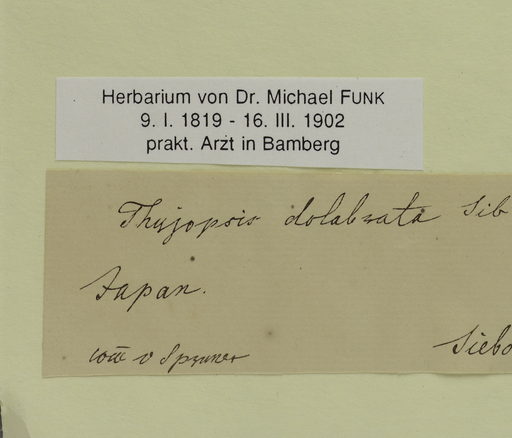 Herbarium von Dr. Michael FUNK
9. I. 1819 - 16. III. 1902
prakt. Arzt in Bamberg
Thujopsis dolabrata Sib
Japan.
v Spruner
Siebo